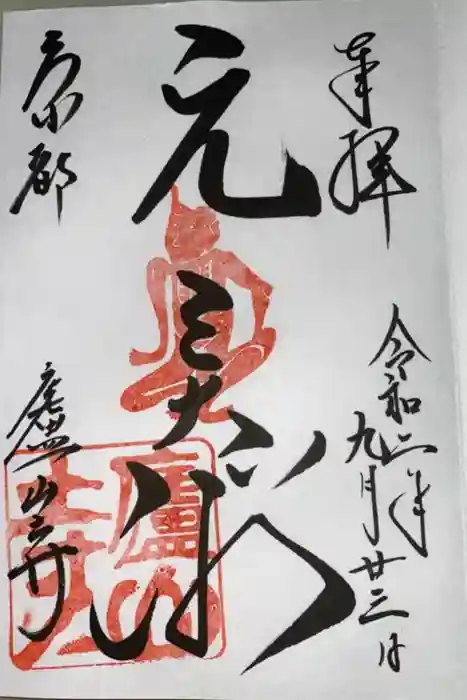 奉拝
令和二年
九月廿三日
元三大师
京都
廬山寺
廬山寺